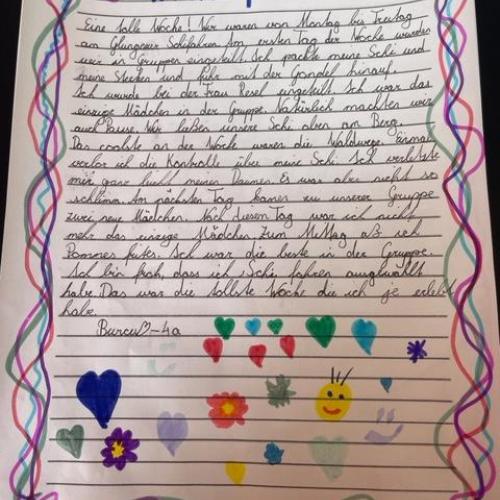 Eine tolle Woche! Wir waren von Montag bis Freitag
am Glungezer Schifahren. Am ersten Tag der Woche wurden
wir in gruppen eingeteilt. Ich packte meine Schi und
meine Stecken und fuhr mit der Gondel hinauf.
Ich wurde bei der Frau eingeteilt. Ich war das
einzige Mädchen in der Gruppe. Natürlich machten wir
auch Pause. Wir ließen unsere Schi oben am Berg.
Das coolste an der Woche waren die Waldwege. Einmal
verlor ich die Kontrolle über meine Schi. Ich verletzte
mir ganz leicht meinen Daumen. Es war aber nicht so
schlimm. Am nächsten Tag kamen zu unserer Gruppe
zwei neue Mädchen. Nach diesen Tag war ich nicht
mehr das einzige Mädchen. Zum Mittag aß ich
Pommes frites. Ich war die beste in der Gruppe.
Ich bin froh, dass ich Schi fahren ausgewählt
habe. Das war die tollste Woche die ich je erlebt
habe.
Burcu♡-4a